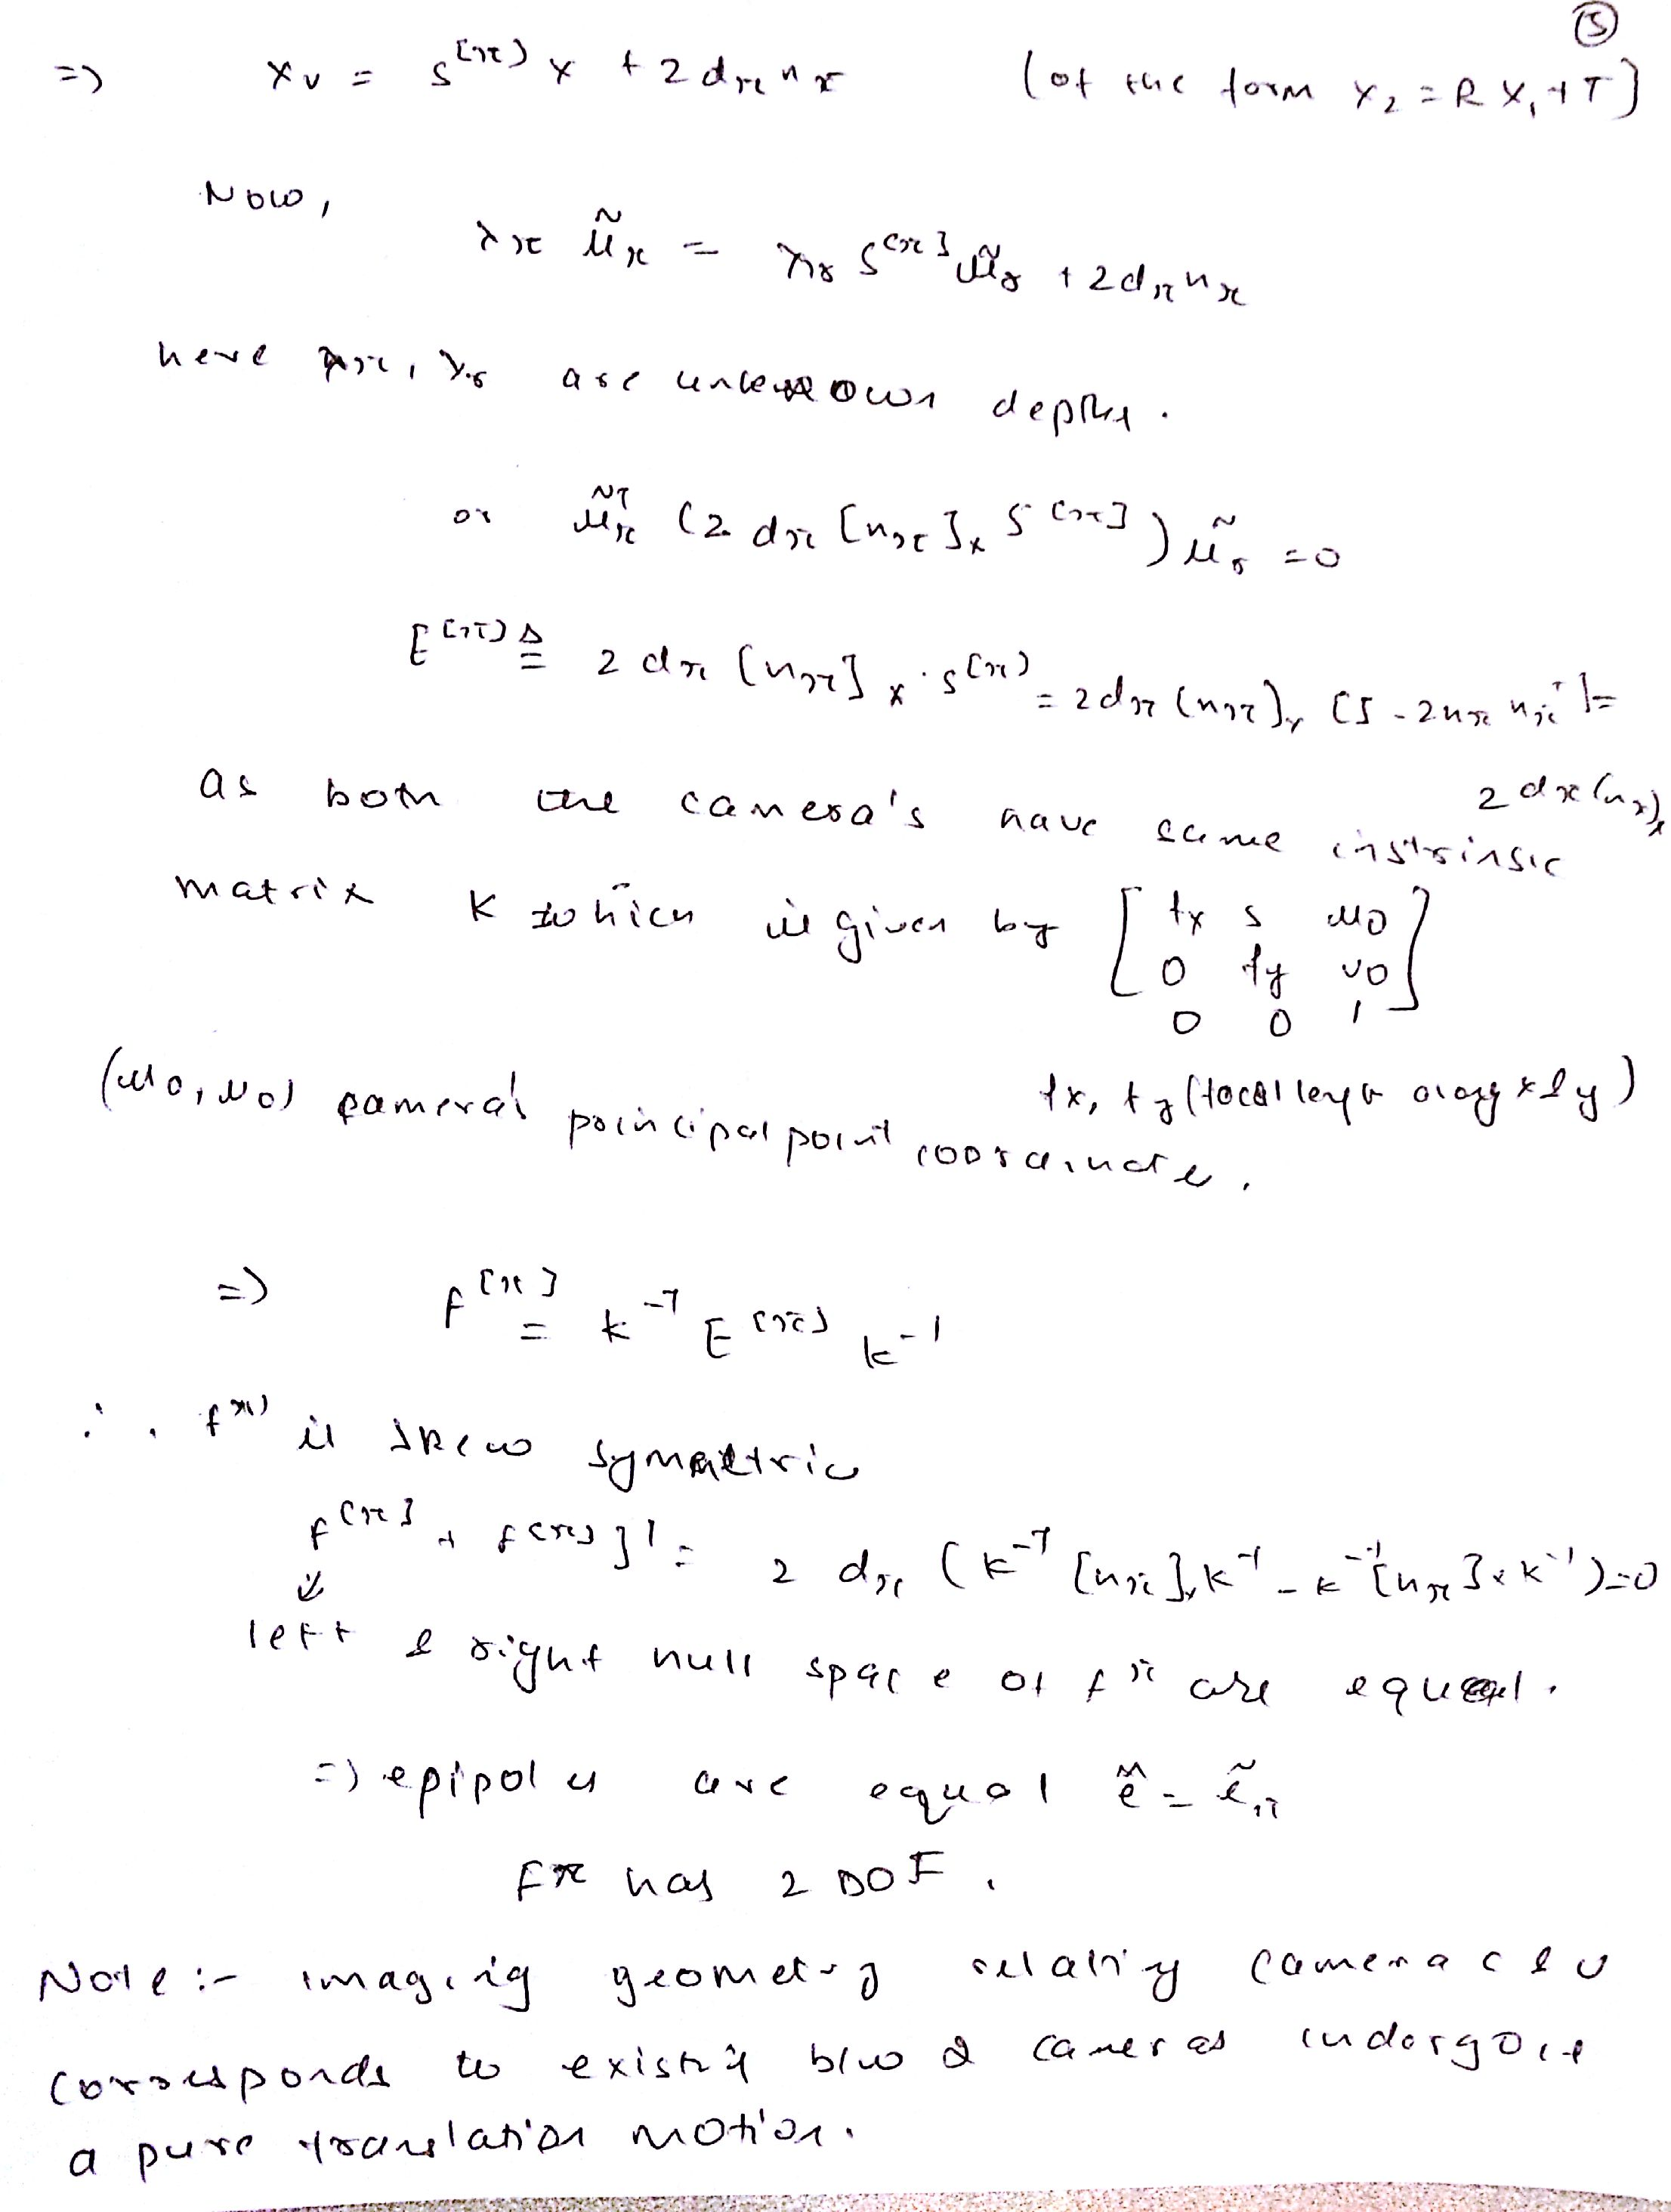 ⑤
=> X_v = S^[π] X + 2 d_π n_π (of the form X_2 = R X_1 + T)
Now,
λ_π ũ_π = λ_γ S^[π] ũ_γ + 2 d_π n_π
here λ_π, λ_γ are unknown depths.
or ũ_π^T (2 d_π [n_π]_x S^[π]) ũ_γ = 0
E^[π] ≜ 2 d_π [n_π]_x · S^[π] = 2 d_π [n_π]_x [I - 2 n_π n_π^T] =
2 d_π [n_π]_x
as both the camera's have same instrinsic
matrix K which is given by [ fx s uo
0 fy vo
0 0 1 ]
fx, fy (focal length along x & y)
(uo, vo) camera's principal point coordinate.
=> F^[π] = K^-T E^[π] K^-1
∴ F^[π] is skew symmetric
F^[π] + F^[π]]^T = 2 d_π (K^-T [n_π]_x K^-1 - K^-T [n_π]_x K^-1) = 0
↓
left & right null space of F^π are equal.
=> epipoles are equal ẽ = ẽ_π
F^π has 2 DOF.
Note :- imaging geometry relating camera c & v
corresponds to existing b/w 2 cameras undergoing
a pure translation motion.